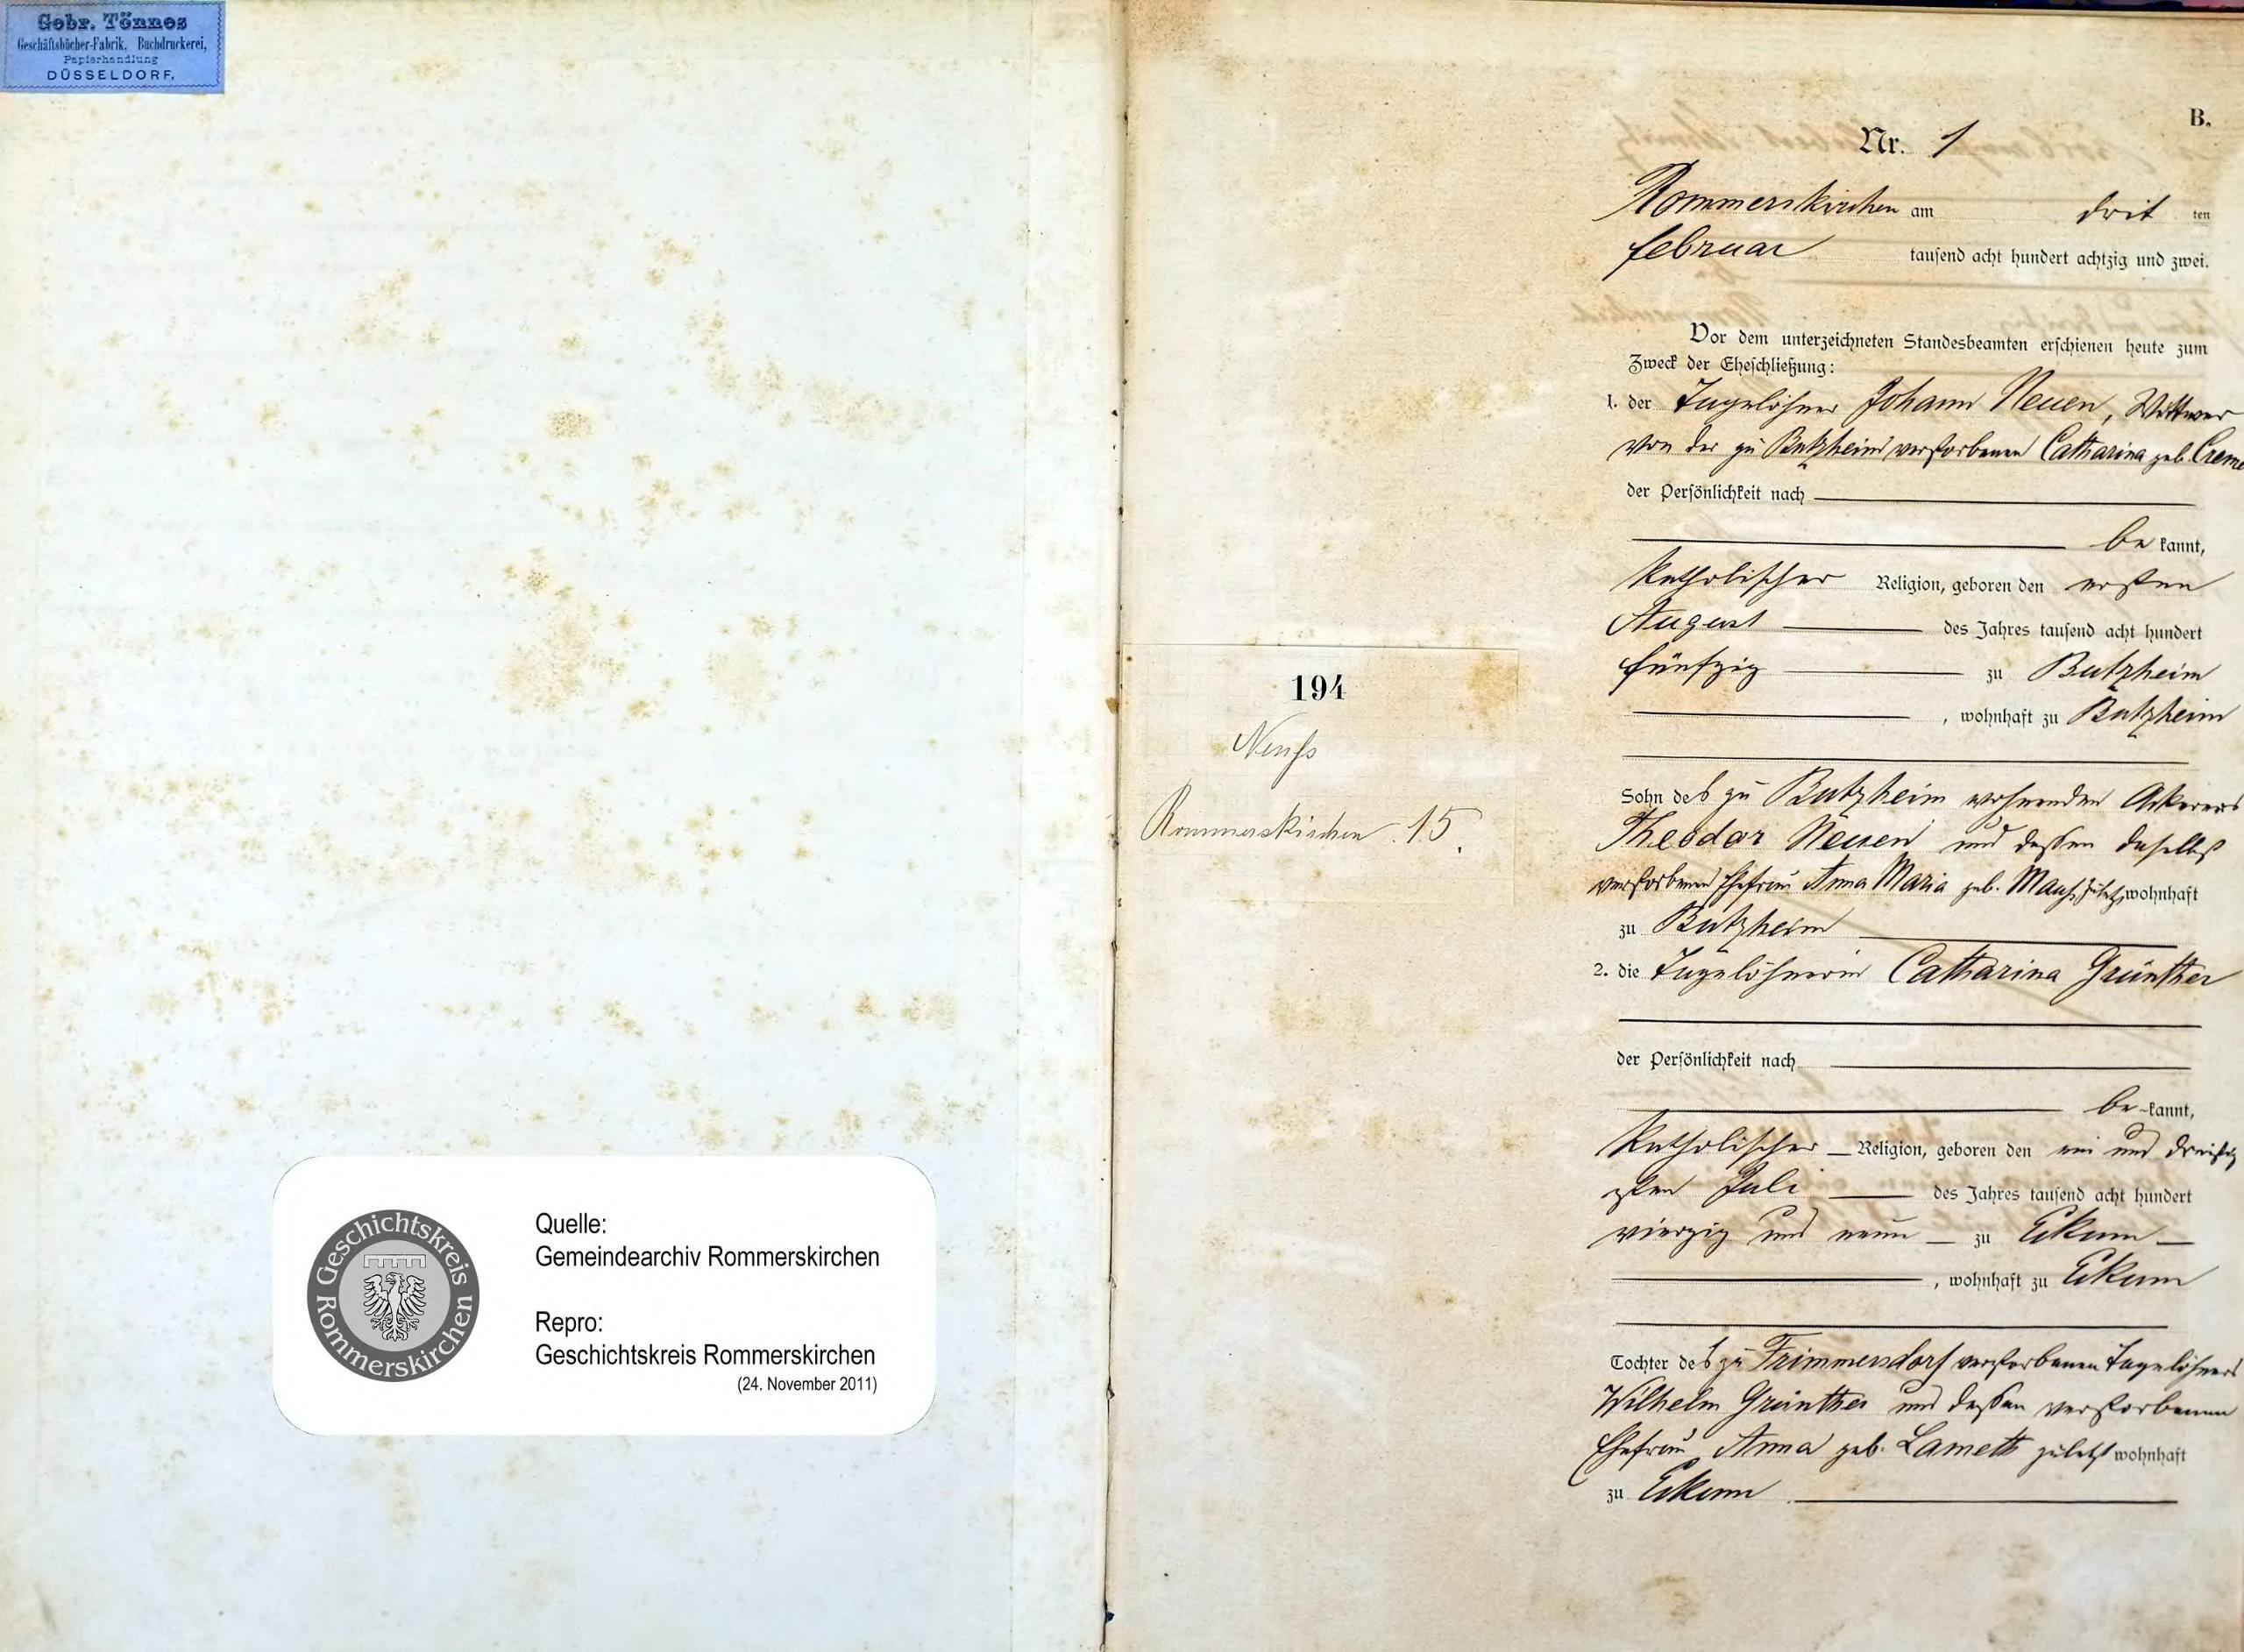 Gebr. Tönnes
Geschäftsbücher-Fabrik, Buchdruckerei,
Papierhandlung
DÜSSELDORF.
B.
Nr. 1
Rommerskirchen am drit ten
Februar tausend acht hundert achtzig und zwei.
Vor dem unterzeichneten Standesbeamten erschienen heute zum
Zweck der Eheschließung:
1. der Tagelöhner Johann Neuen, Wittwer
von der zu Butzheim verstorbenen Catharina geb. Creme
der Persönlichkeit nach
be kannt,
katholischer Religion, geboren den ersten
August des Jahres tausend acht hundert
fünfzig zu Butzheim
, wohnhaft zu Butzheim
Sohn des zu Butzheim wohnenden Ackerers
Theodor Neuen und dessen daselbst
verstorbenen Ehefrau Anna Maria geb. zuletzt wohnhaft
zu Butzheim
2. die Tagelöhnerin Catharina Günther
der Persönlichkeit nach
be kannt,
katholischer Religion, geboren den ein und dreißig
sten Juli des Jahres tausend acht hundert
vierzig und neun zu Eckum
, wohnhaft zu Eckum
Tochter des zu Frimmersdorf verstorbenen Tagelöhners
Wilhelm Günther und dessen verstorbenen
Ehefrau Anna geb. Lameth zuletzt wohnhaft
zu Eckum
194
Neuss
Rommerskirchen 15.
Geschichtskreis Rommerskirchen
Quelle:
Gemeindearchiv Rommerskirchen
Repro:
Geschichtskreis Rommerskirchen
(24. November 2011)